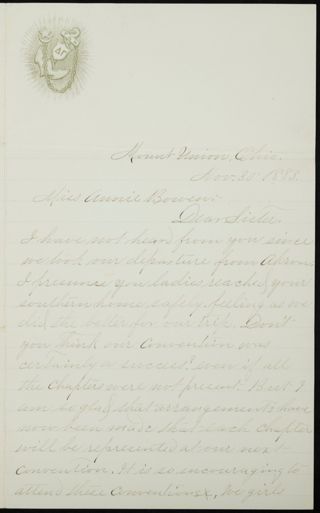 ΔΓ
Mount Union, Ohio.
Nov. 30" 1883.
Miss Annie Bowen:
Dear Sister.
I have not heard from you since
we took our departure from Akron,
I presume you ladies reached your
southern home, safely, feeling as we
did, the better for our trip. Don't
you think our Convention was
certainly a success? even if all
the Chapters were not present. But I
am so glad that arrangements have
now been made that each Chapter
will be represented at our next
convention. It is so encouraging to
attend these Conventions, We girls